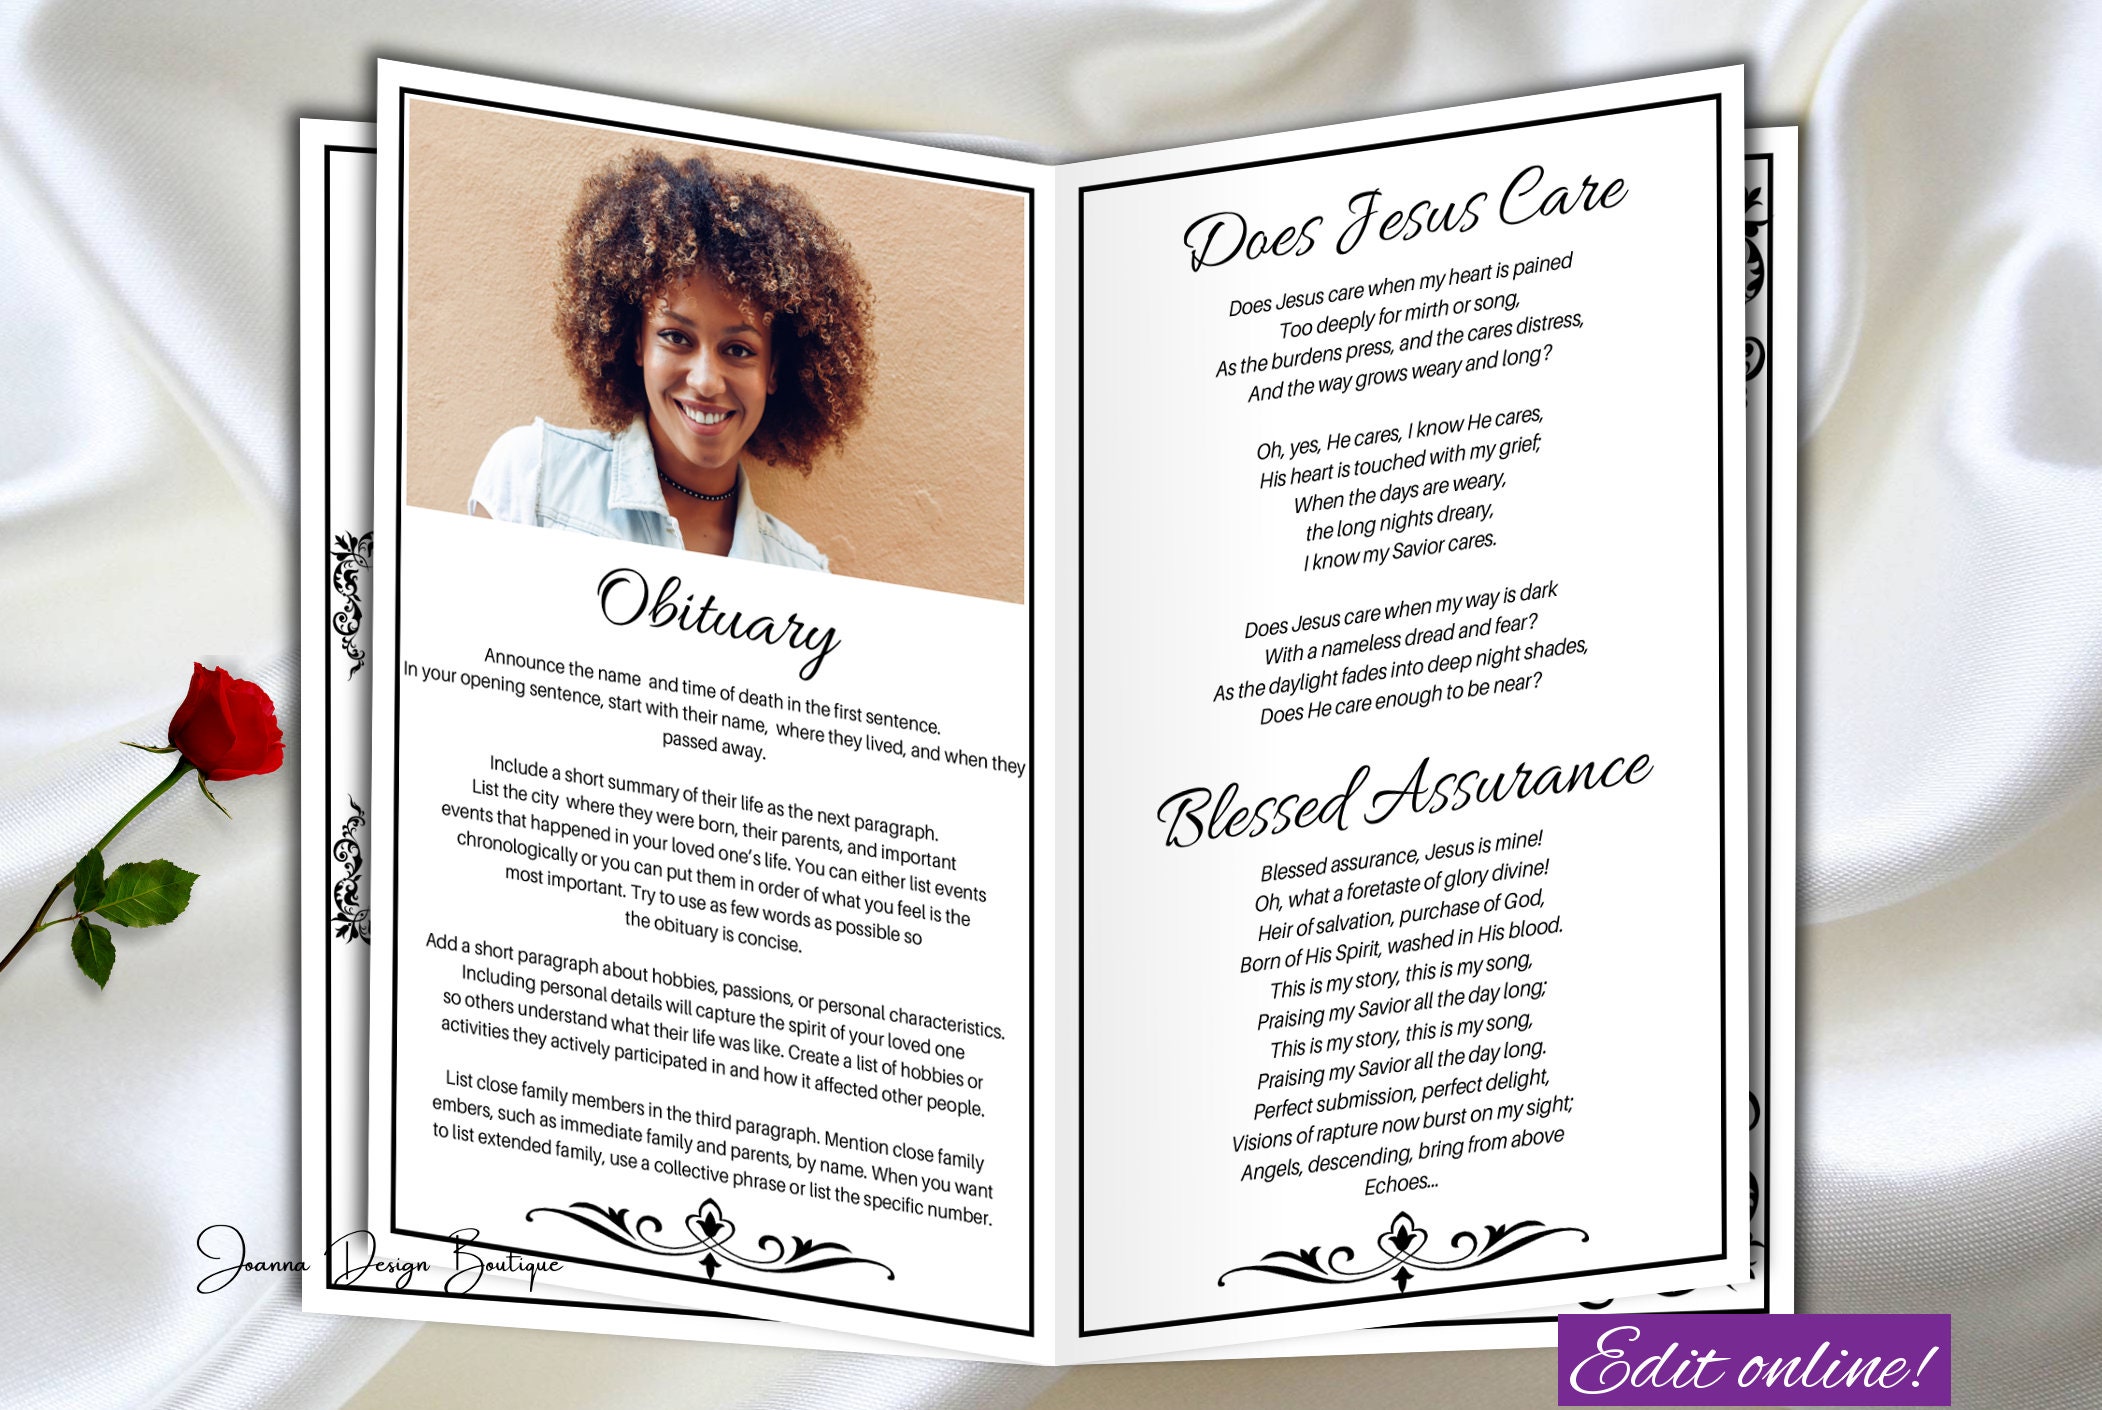 Obituary
Announce the name and time of death in the first sentence.
In your opening sentence, start with their name, where they lived, and when they
passed away.
Include a short summary of their life as the next paragraph.
List the city where they were born, their parents, and important
events that happened in your loved one's life. You can either list events
chronologically or you can put them in order of what you feel is the
most important. Try to use as few words as possible so
the obituary is concise.
Add a short paragraph about hobbies, passions, or personal characteristics.
Including personal details will capture the spirit of your loved one
so others understand what their life was like. Create a list of hobbies or
activities they actively participated in and how it affected other people.
List close family members in the third paragraph. Mention close family
embers, such as immediate family and parents, by name. When you want
to list extended family, use a collective phrase or list the specific number.
Does Jesus Care
Does Jesus care when my heart is pained
Too deeply for mirth or song,
As the burdens press, and the cares distress,
And the way grows weary and long?
Oh, yes, He cares, I know He cares,
His heart is touched with my grief;
When the days are weary,
the long nights dreary,
I know my Savior cares.
Does Jesus care when my way is dark
With a nameless dread and fear?
As the daylight fades into deep night shades,
Does He care enough to be near?
Blessed Assurance
Blessed assurance, Jesus is mine!
Oh, what a foretaste of glory divine!
Heir of salvation, purchase of God,
Born of His Spirit, washed in His blood.
This is my story, this is my song,
Praising my Savior all the day long;
This is my story, this is my song,
Praising my Savior all the day long.
Perfect submission, perfect delight,
Visions of rapture now burst on my sight;
Angels, descending, bring from above
Echoes...
Joanna Design Boutique
Edit online!